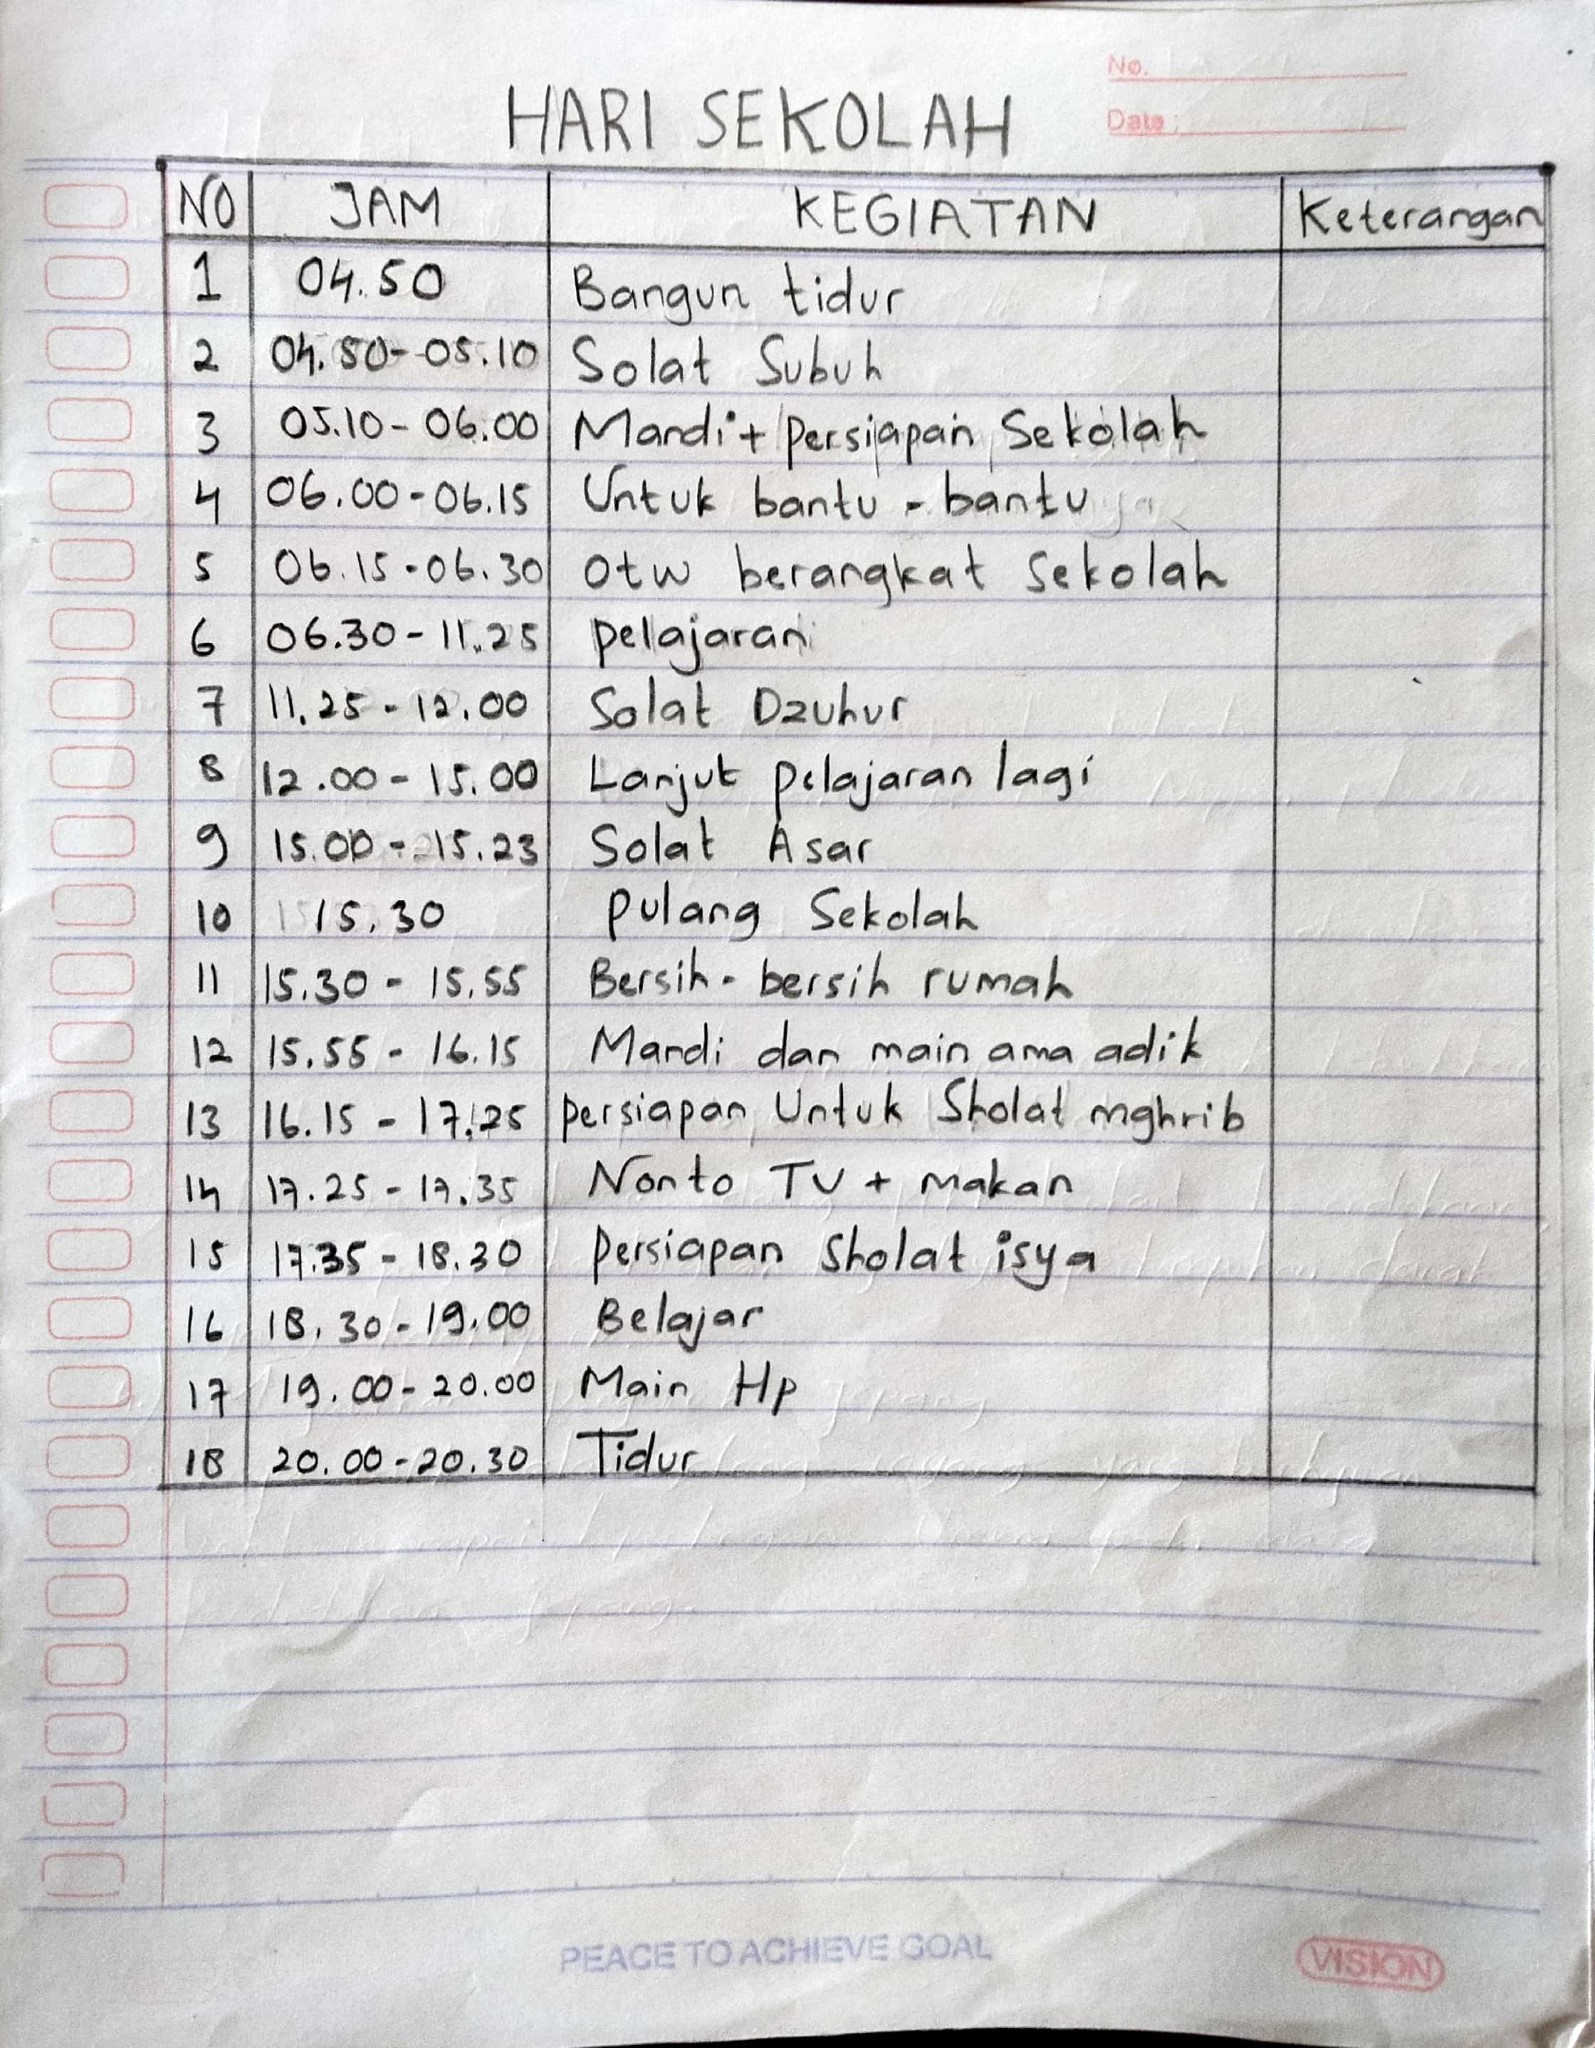 No.
Date :
HARI SEKOLAH
NO JAM KEGIATAN Keterangan
1 04.50 Bangun tidur
2 04.50-05.10 Solat Subuh
3 05.10-06.00 Mandi + Persiapan Sekolah
4 06.00-06.15 Untuk bantu-bantu
5 06.15-06.30 otw berangkat Sekolah
6 06.30-11.25 Pelajaran
7 11.25-12.00 Solat Dzuhur
8 12.00-15.00 Lanjut pelajaran lagi
9 15.00-15.23 Solat Asar
10 15.30 Pulang Sekolah
11 15.30-15.55 Bersih-bersih rumah
12 15.55-16.15 Mandi dan main ama adik
13 16.15-17.25 Persiapan Untuk Sholat mghrib
14 17.25-17.35 Nonto TV + makan
15 17.35-18.30 Persiapan Sholat isya
16 18.30-19.00 Belajar
17 19.00-20.00 Main Hp
18 20.00-20.30 Tidur
PEACE TO ACHIEVE GOAL
VISION